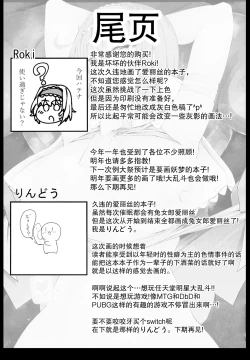 尾页
Roki
今回ハテナ
使い過ぎじゃない?
非常感谢您的购买!
我是坏坏的伙伴Roki!
这次久违地画了爱丽丝的本子,
不知道您感觉怎么样呢?
这次虽然挑战了一下上色
但是因为印刷没有准备好,
最后还是匆忙地改成灰白色稿了^p^
所以比起平常可能会改变一些灰影的画法…!
今年一年也受到了各位不少照顾!
明年也请多多指教!
下一次例大祭预计是要画妖梦的本子!
明年要画更多的画了哦!大乱斗也会做哦!
那么这次就在这里分别了! 下期再见!
りんどう
久违的爱丽丝的本子!
虽然每次催眠都会有兔女郎爱丽丝
但是这次从开始到结束全都画成兔女郎爱丽丝了!
我是りんどう。
这次画的时候想着
读者能享受到以年轻时的性癖为主的色情事件的话
能把这本本子作为一辈子的下酒菜的话就好了啊
就是以这样的感觉去画的。
啊啊说起这个…想玩任天堂明星大乱斗!!
不如说是想玩游戏!像MTG和DbD和
PUBG这样的有趣的游戏不停冒出来啊…!
要不要咬咬牙买个switch呢
在下就是りんどう。下期再见!